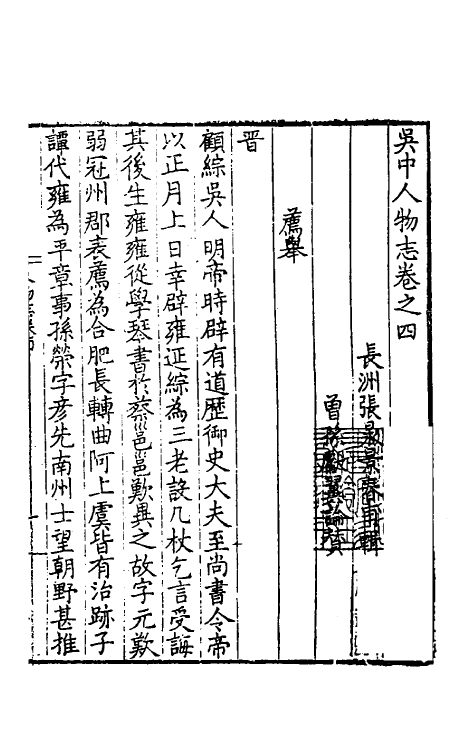 吳中人物志卷之四
長洲張昶景春甫輯
曾孫獻翼論贊
薦舉
晉
顧綜吳人明帝時辟有道歷御史大夫至尚書令帝
以正月上日幸辟雍延綜為三老設几杖乞言受誨
其後生雍雍從學琴書於蔡邕邕歎異之故字元歎
弱冠州郡表薦為合肥長轉曲阿上虞皆有治跡子
譚代雍為平章事孫榮字彥先南州士望朝野甚推